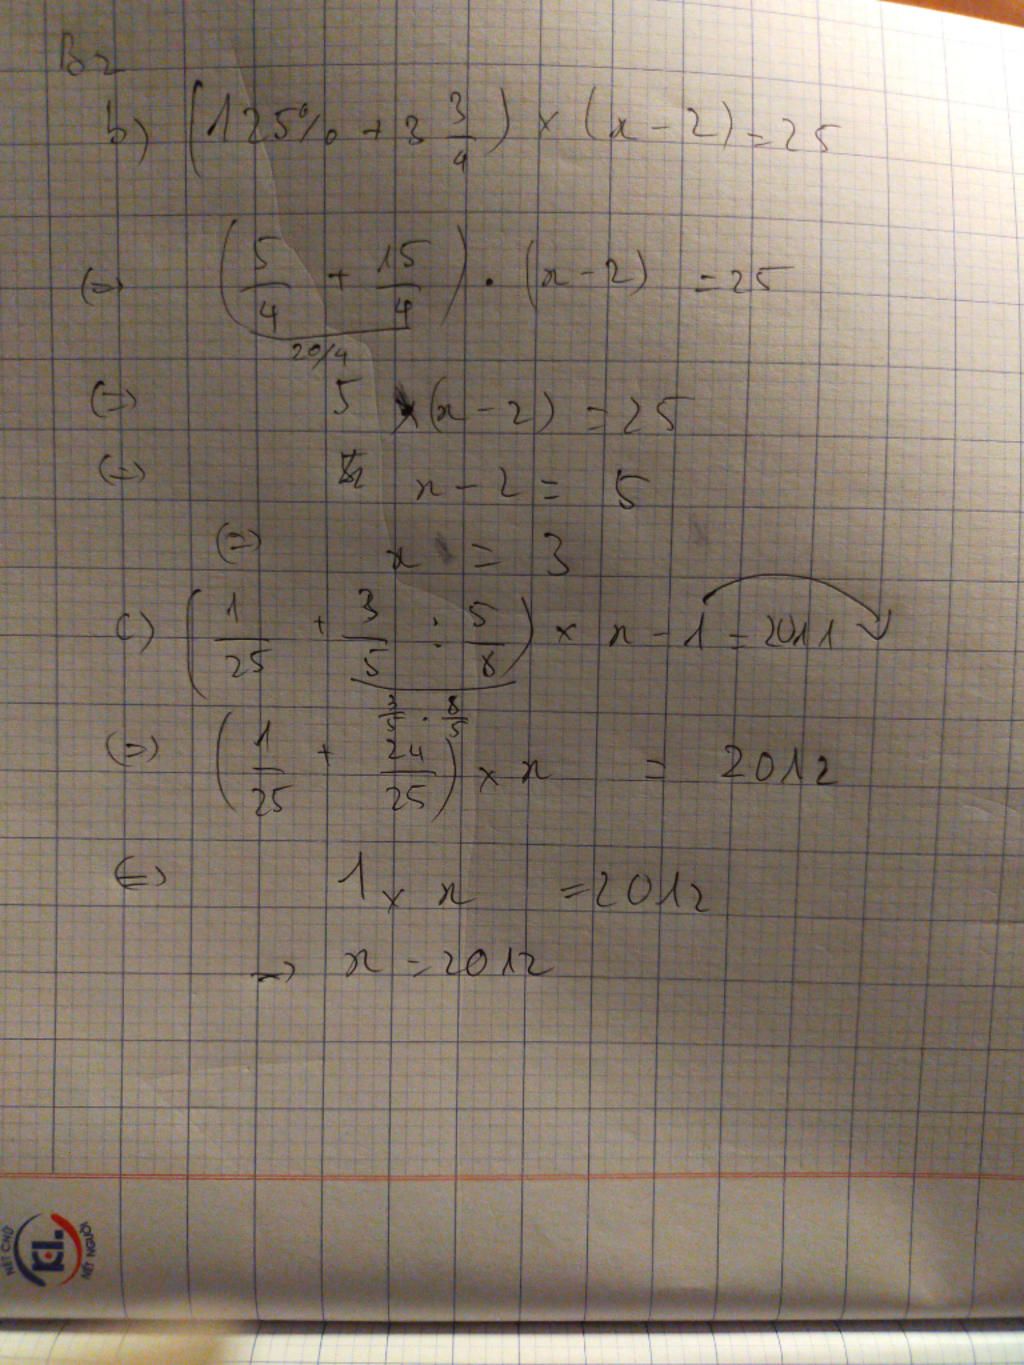 B2
b) (125% + 3 3/4) × (x - 2) = 25
(=) (5/4 + 15/4) . (x - 2) = 25
20/4
(=) 5 × (x - 2) = 25
(=) x - 2 = 5
(=) x = 3
c) (1/25 + 3/5 : 5/8) × x - 1 = 2011
3/5 . 8/5
(=) (1/25 + 24/25) × x = 2012
(=) 1 × x = 2012
→ x = 2012
KL.
NÉT CHỮ
NẾT NGƯỜI